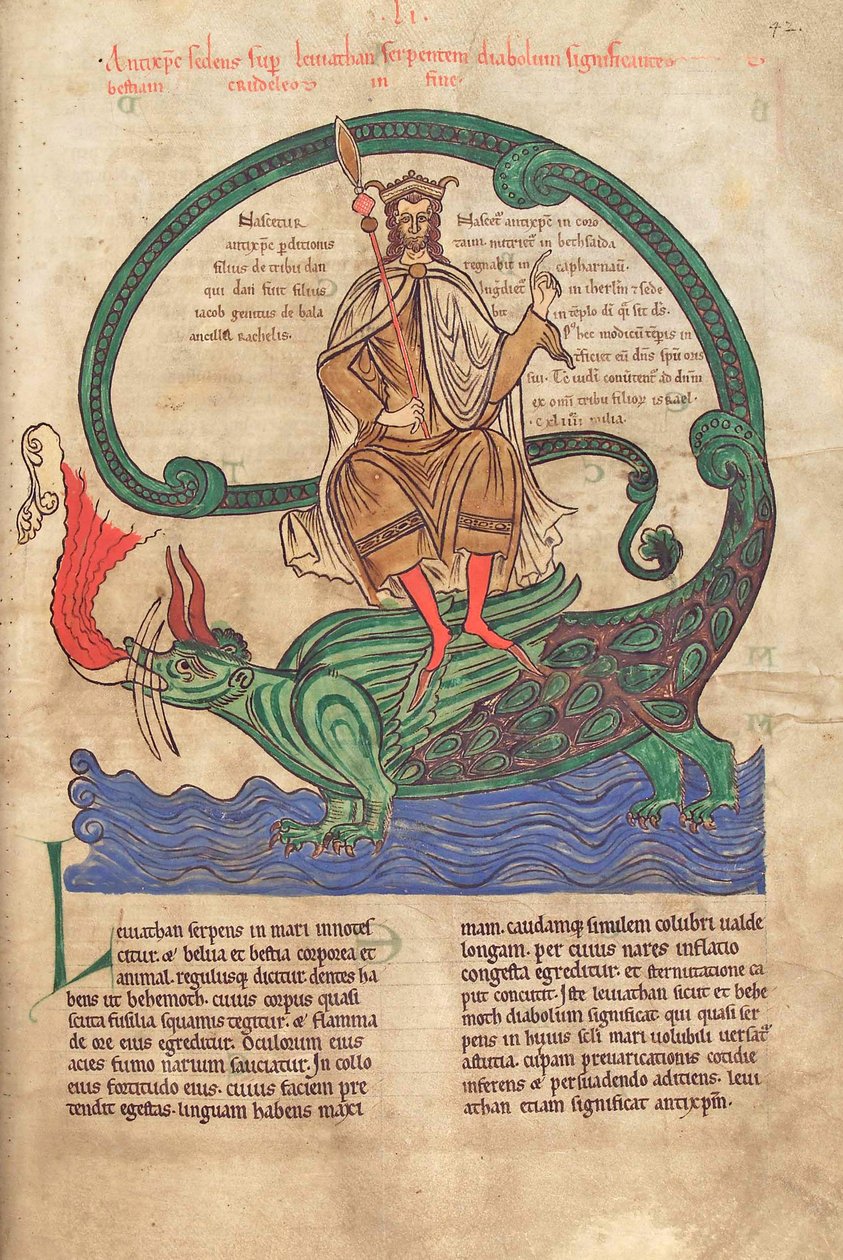 .LI.
42.
Antixp̄c sedens sup̄ leuiathan serpentem diabolum significante
bestiam crudelem in fine.
Nascetur
antixp̄c p̄ditionis
filius de tribu dan
qui dan fuit filius
iacob genitus de bala
ancilla rachelis.
Nascet᷑ antixp̄c in coro
zaim. nutriet᷑ in bethsaida
regnabit in capharnaū.
in iherl̄m ⁊ sede
bit in tēplo dī q̄si sit d̄s.
P᷒ hec modicū tēpis in
t̄ficiet eū dn̄s spū oris
sui. Tc̄ iudī conūtent᷑ ad dn̄m
ex om̄i tribu filioꝝ israel
.cxliiii. milia.
Leuiathan serpens in mari innotes
citur. & belua et bestia corporea et
animal. regulusq; dicitur. dentes ha
bens ut behemoth. cuius corpus quasi
scuta fusilia squamis tegitur. & flamma
de ore eius egreditur. Oculorum eius
acies fumo narium sauciatur. In collo
eius fortitudo eius. cuius faciem pre
tendit egestas. linguam habens maxi
mam. caudamq; similem colubri ualde
longam. per cuius nares inflatio
congesta egreditur. et sternutatione ca
put concutit. Iste leuiathan sicut et behe
moth diabolum significat qui quasi ser
pens in huius sc̄li mari uolubili uersat᷑
astutia. cupam preuaricationis cotidie
inferens & persuadendo aditiens. leui
athan etiam significat antixp̄m.